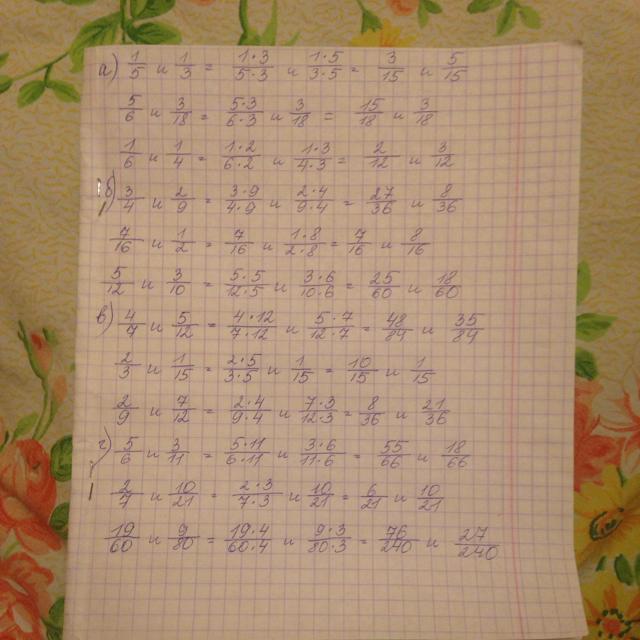 а) 1/5 и 1/3 = 1·3/5·3 и 1·5/3·5 = 3/15 и 5/15
5/6 и 3/18 = 5·3/6·3 и 3/18 = 15/18 и 3/18
1/6 и 1/4 = 1·2/6·2 и 1·3/4·3 = 2/12 и 3/12
б) 3/4 и 2/9 = 3·9/4·9 и 2·4/9·4 = 27/36 и 8/36
7/16 и 1/2 = 7/16 и 1·8/2·8 = 7/16 и 8/16
5/12 и 3/10 = 5·5/12·5 и 3·6/10·6 = 25/60 и 18/60
в) 4/7 и 5/12 = 4·12/7·12 и 5·7/12·7 = 48/84 и 35/84
2/3 и 1/15 = 2·5/3·5 и 1/15 = 10/15 и 1/15
2/9 и 7/12 = 2·4/9·4 и 7·3/12·3 = 8/36 и 21/36
г) 5/6 и 3/11 = 5·11/6·11 и 3·6/11·6 = 55/66 и 18/66
2/7 и 10/21 = 2·3/7·3 и 10/21 = 6/21 и 10/21
19/60 и 9/80 = 19·4/60·4 и 9·3/80·3 = 76/240 и 27/240